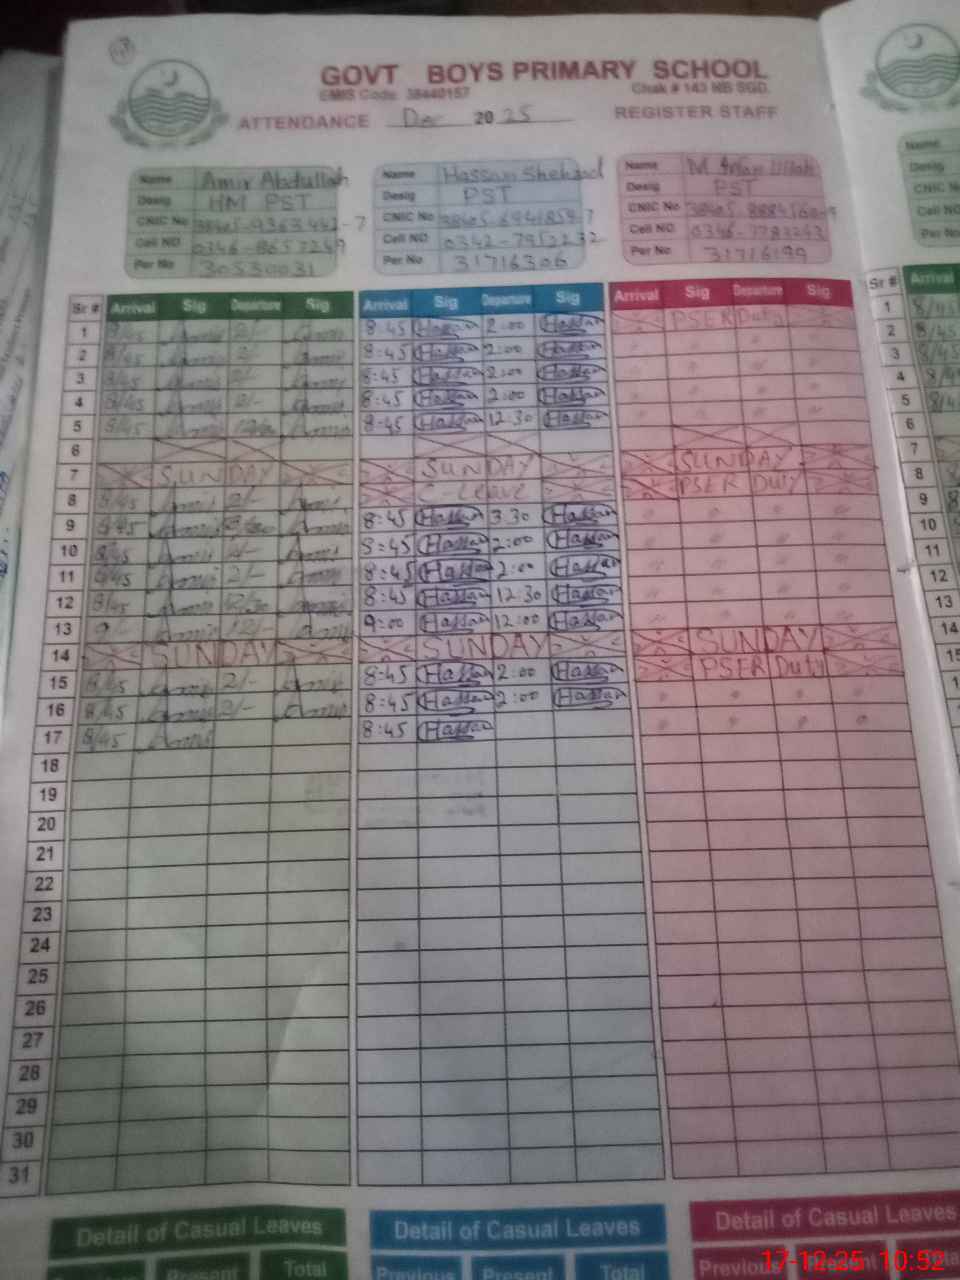 GOVT BOYS PRIMARY SCHOOL
EMIS Code 38440157 Chak # 143 NB SGD.
ATTENDANCE Dec 2025 REGISTER STAFF
Name Amir Abdullah Name Hassan Shehzad Name M
Desig HM PST Desig PST Desig PST
CNIC No CNIC No CNIC No
Cell NO Cell NO Cell NO
Per No 30530031 Per No 31716306 Per No 31716199
Sr # Arrival Sig Departure Sig Arrival Sig Departure Sig Arrival Sig Departure Sig Sr # Arrival
1 8/45 Amir 2/- Amir 8:45 Hassan 2:00 Hassan PSER Duty 1 8/45
2 8/45 Amir 2/- Amir 8:45 Hassan 2:00 Hassan " " " " 2 8/45
3 8/45 Amir 2/- Amir 8:45 Hassan 2:00 Hassan " " " " 3 8/45
4 8/45 Amir 2/- Amir 8:45 Hassan 2:00 Hassan " " " " 4 8/45
5 8/45 Amir Amir 8:45 Hassan 12:30 Hassan " " " " 5 8/45
6 6
7 SUNDAY SUNDAY SUNDAY 7
8 8/45 Amir 2/- Amir C-Leave PSER Duty 8
9 8/45 Amir Amir 8:45 Hassan 3:30 Hassan " " " " 9
10 8/45 Amir 2/- Amir 8:45 Hassan 2:00 Hassan " " " " 10
11 8/45 Amir 2/- Amir 8:45 Hassan 2:00 Hassan " " " " 11
12 8/45 Amir 12/30 Amir 8:45 Hassan 12:30 Hassan " " " " 12
13 9/- Amir 12/- Amir 9:00 Hassan 12:00 Hassan " " " " 13
14 SUNDAY SUNDAY SUNDAY 14
15 8/45 Amir 2/- Amir 8:45 Hassan 2:00 Hassan PSER Duty 15
16 8/45 Amir 2/- Amir 8:45 Hassan 2:00 Hassan " " " "
17 8/45 Amir 8:45 Hassan " " " "
18
19
20
21
22
23
24
25
26
27
28
29
30
31
Detail of Casual Leaves Detail of Casual Leaves Detail of Casual Leaves
Present Total Previous Present Total Previous Present
17-12-25 10:52